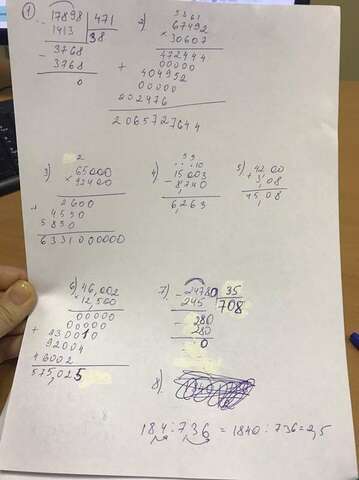 1
17898 | 471
1413 | 38
- 3768
3768
0
2)
5361
67492
× 30607
472444
00000
+ 404952
00000
202476
2065727644
3)
2
65000
× 92400
2600
+ 4550
5850
6331000000
4)
99
10
15,003
- 8,740
6,263
5) 42,00
+ 3,08
45,08
6) 46,002
× 12,500
00000
00000
+ 230010
92004
46002
575,025
7) - 24780 | 35
245 | 708
- 280
280
0
8)
184 : 7,36 = 1840 : 736 = 2,5